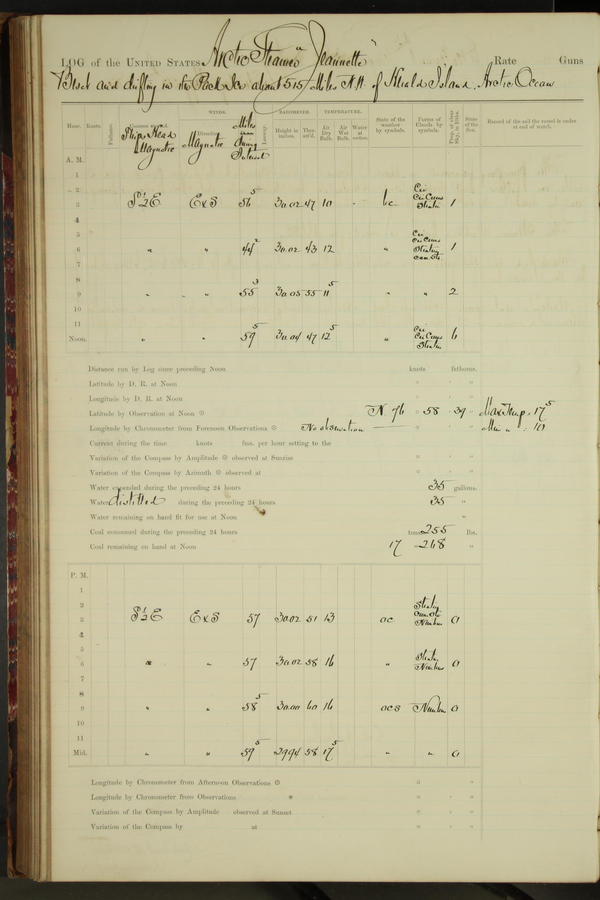 LOG of the UNITED STATES Arctic Steamer "Jeannette" Rate Guns
Beset and drifting in the Pack Ice about 515 Miles N.W. of Herald Island, Arctic Ocean
WINDS. BAROMETER. TEMPERATURE.
Hour. Knots. Fathoms. Ship's Head Magnetic Direction Magnetic Miles during Interval Leeway. Height in inches. Ther. att'd. Air Dry Bulb. Air Wet Bulb. Water at surface. State of the weather by symbols. Forms of Clouds by symbols. Prop. of clear Sky, in 10ths. State of the Sea. Record of the sail the vessel is under at end of watch.
A. M.
1
2
3 S½E E x S 56⁵ 30.02 47 10 bc Cir Cir Cums Strata 1
4
5
6 " " 44² 30.02 43 12 " Cir Cir Cums Strata 1
7
8
9 " " 55³ 30.05 55 11⁵ " " 2
10
11
Noon. " " 59⁵ 30.04 47 12⁵ " Cir Cir Cums Strata 6
Distance run by Log since preceding Noon knots fathoms.
Latitude by D. R. at Noon ° ' "
Longitude by D. R. at Noon ° ' "
Latitude by Observation at Noon ☉ N 76 ° 58 ' 39 " Max Temp. 17⁵
Longitude by Chronometer from Forenoon Observations ☉ No observation ° ' " Min " : 10
Current during the time knots fms. per hour setting to the
Variation of the Compass by Amplitude ☉ observed at Sunrise ° ' "
Variation of the Compass by Azimuth ☉ observed at ° ' "
Water expended during the preceding 24 hours 35 gallons.
Water distilled during the preceding 24 hours 35 "
Water remaining on hand fit for use at Noon "
Coal consumed during the preceding 24 hours tons 255 lbs.
Coal remaining on hand at Noon 17 268 "
P. M.
1
2
3 S½E E x S 57 30.02 51 13 oc Strata Nimbus 0
4
5
6 " " 57 30.02 58 16 " Strata Nimbus 0
7
8
9 " " 58⁵ 30.00 60 16 ocs Nimbus 0
10
11
Mid. " " 59⁵ 29.94 58 17⁵ " " 0
Longitude by Chronometer from Afternoon Observations ☉ ° ' "
Longitude by Chronometer from Observations * ° ' "
Variation of the Compass by Amplitude observed at Sunset ° ' "
Variation of the Compass by at ° ' "